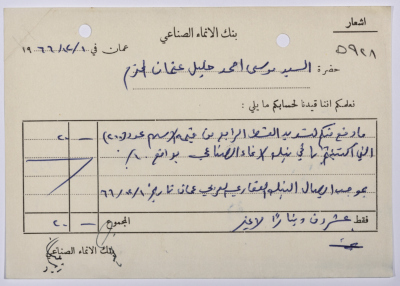 اشعار
بنك الانماء الصناعي
٥٩٢٨
عمان في ١/٧/١٩٦٦
حضرة السيد موسى احمد خليل عثمان
نعلمكم اننا قيدنا لحسابكم ما يلي :
ما دفع منكم لتسديد القسط الرابع من قيمة الاسهم عدد (٢٠) ٢٠ —
التي اكتتبتم بها في بنك الانماء الصناعي بواقع ١٠٪
بموجب ايصال البنك العقاري العربي عمان تاريخ ١/٧/٦٦
فقط عشرون دينارا لا غير المجموع ٢٠ —
بنك الانماء الصناعي